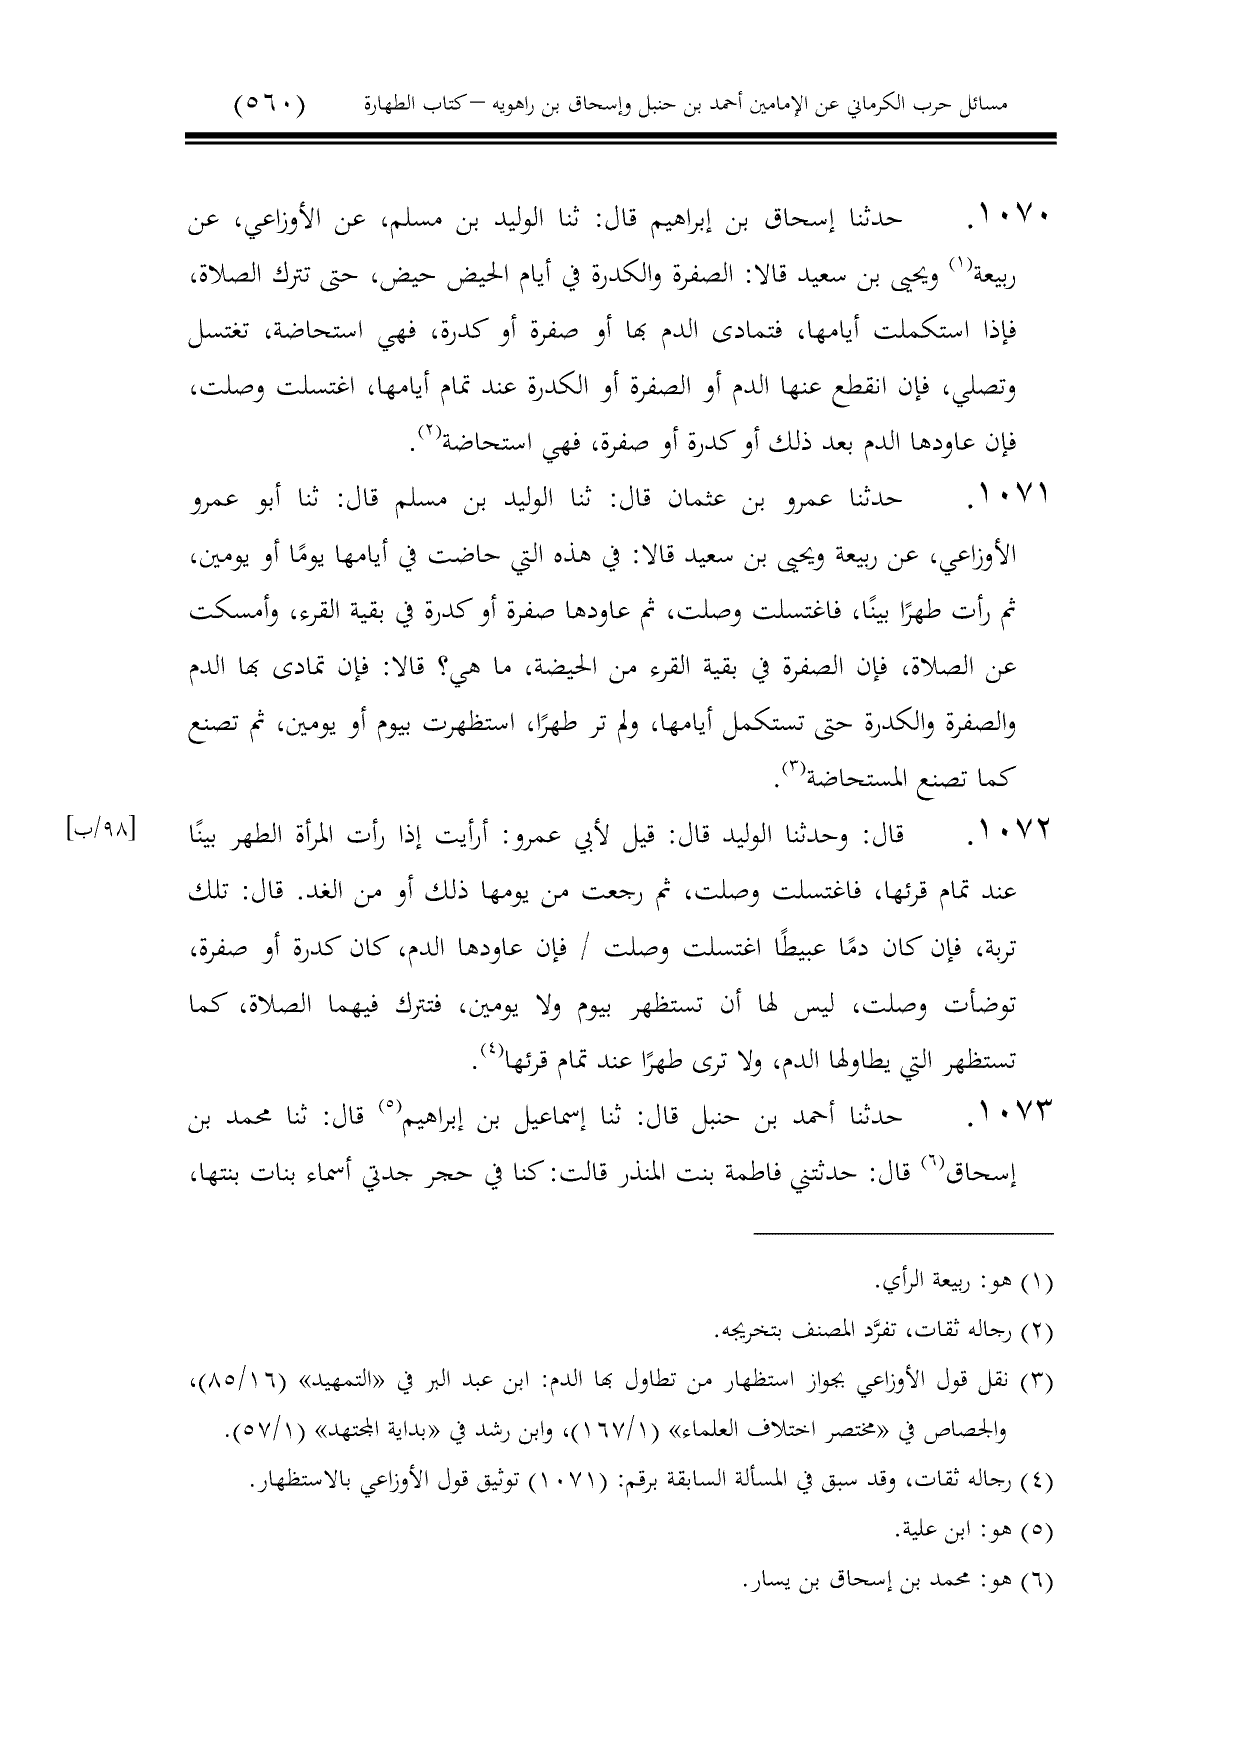 مسائل حرب الكرماني عن الإمامين أحمد بن حنبل وإسحاق بن راهويه – كتاب الطهارة (٥٦٠)
١٠٧٠. حدثنا إسحاق بن إبراهيم قال: ثنا الوليد بن مسلم، عن الأوزاعي، عن
ربيعة(١) ويحيى بن سعيد قالا: الصفرة والكدرة في أيام الحيض حيض، حتى تترك الصلاة،
فإذا استكملت أيامها، فتمادى الدم بها أو صفرة أو كدرة، فهي استحاضة، تغتسل
وتصلي، فإن انقطع عنها الدم أو الصفرة أو الكدرة عند تمام أيامها، اغتسلت وصلت،
فإن عاودها الدم بعد ذلك أو كدرة أو صفرة، فهي استحاضة(٢).
١٠٧١. حدثنا عمرو بن عثمان قال: ثنا الوليد بن مسلم قال: ثنا أبو عمرو
الأوزاعي، عن ربيعة ويحيى بن سعيد قالا: في هذه التي حاضت في أيامها يومًا أو يومين،
ثم رأت طهرًا بينًا، فاغتسلت وصلت، ثم عاودها صفرة أو كدرة في بقية القرء، وأمسكت
عن الصلاة، فإن الصفرة في بقية القرء من الحيضة، ما هي؟ قالا: فإن تمادى بها الدم
والصفرة والكدرة حتى تستكمل أيامها، ولم تر طهرًا، استظهرت بيوم أو يومين، ثم تصنع
كما تصنع المستحاضة(٣).
١٠٧٢. قال: وحدثنا الوليد قال: قيل لأبي عمرو: أرأيت إذا رأت المرأة الطهر بينًا [٩٨/ب]
عند تمام قرئها، فاغتسلت وصلت، ثم رجعت من يومها ذلك أو من الغد. قال: تلك
تربة، فإن كان دمًا عبيطًا اغتسلت وصلت / فإن عاودها الدم، كان كدرة أو صفرة،
توضأت وصلت، ليس لها أن تستظهر بيوم ولا يومين، فتترك فيهما الصلاة، كما
تستظهر التي يطاولها الدم، ولا ترى طهرًا عند تمام قرئها(٤).
١٠٧٣. حدثنا أحمد بن حنبل قال: ثنا إسماعيل بن إبراهيم(٥) قال: ثنا محمد بن
إسحاق(٦) قال: حدثتني فاطمة بنت المنذر قالت: كنا في حجر جدتي أسماء بنات بنتها،
(١) هو: ربيعة الرأي.
(٢) رجاله ثقات، تفرَّد المصنف بتخريجه.
(٣) نقل قول الأوزاعي بجواز استظهار من تطاول بها الدم: ابن عبد البر في «التمهيد» (٨٥/١٦)،
والجصاص في «مختصر اختلاف العلماء» (١٦٧/١)، وابن رشد في «بداية المجتهد» (٥٧/١).
(٤) رجاله ثقات، وقد سبق في المسألة السابقة برقم: (١٠٧١) توثيق قول الأوزاعي بالاستظهار.
(٥) هو: ابن علية.
(٦) هو: محمد بن إسحاق بن يسار.